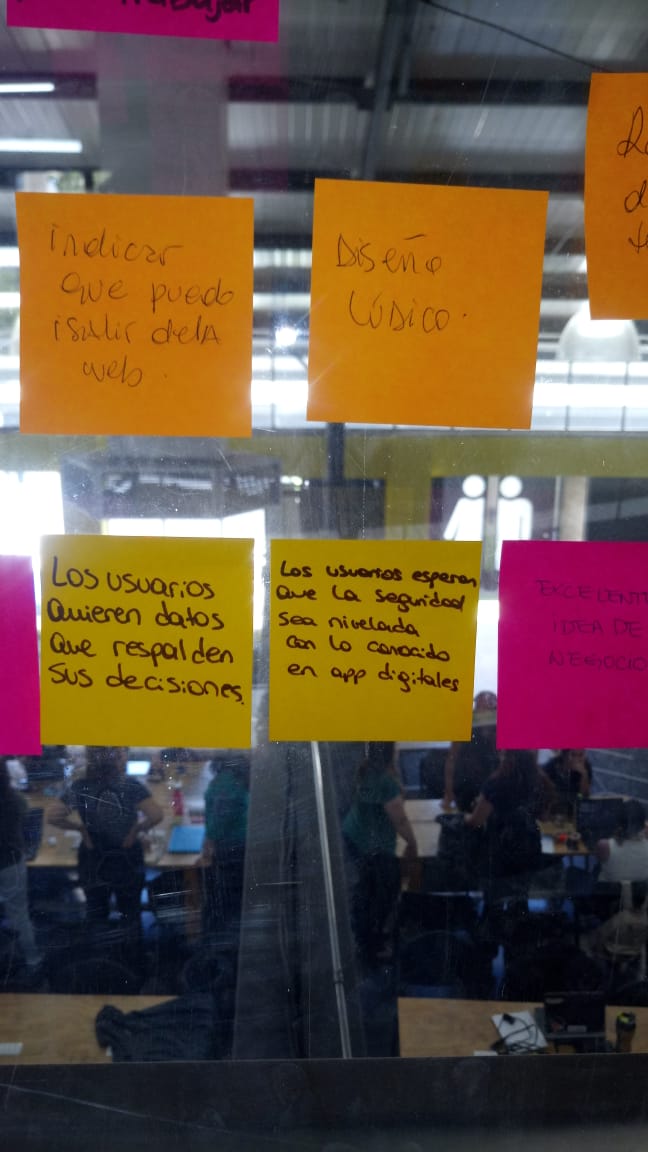 trabajar
indicar
que puedo
salir dela
web.
Diseño
Lúdico.
Los usuarios
quieren datos
que respalden
sus decisiones.
Los usuarios esperan
que la seguridad
sea nivelada
con lo conocido
en app digitales
EXCELENTE
IDEA DE
NEGOCIO